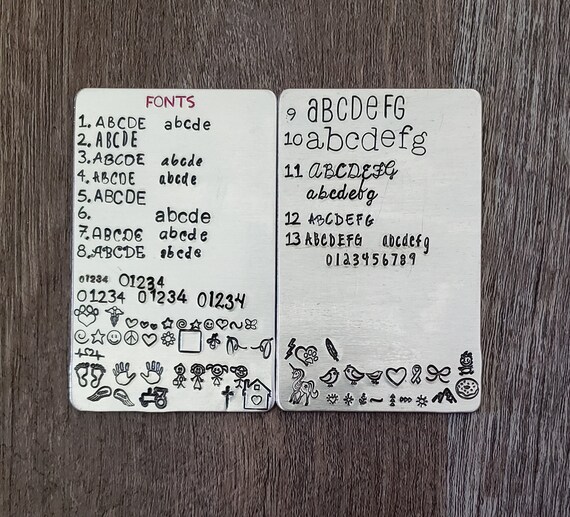 FONTS
1. ABCDE abcde
2. ABCDE
3. ABCDE abcde
4. ABCDE abcde
5. ABCDE
6. abcde
7. ABCDE abcde
8. ABCDE abcde
01234 01234
01234 01234 01234
9 aBCDeFG
10 abcdefg
11 ABCDEFG
abcdefg
12 ABCDEFG
13 ABCDEFG abcdefg
0123456789